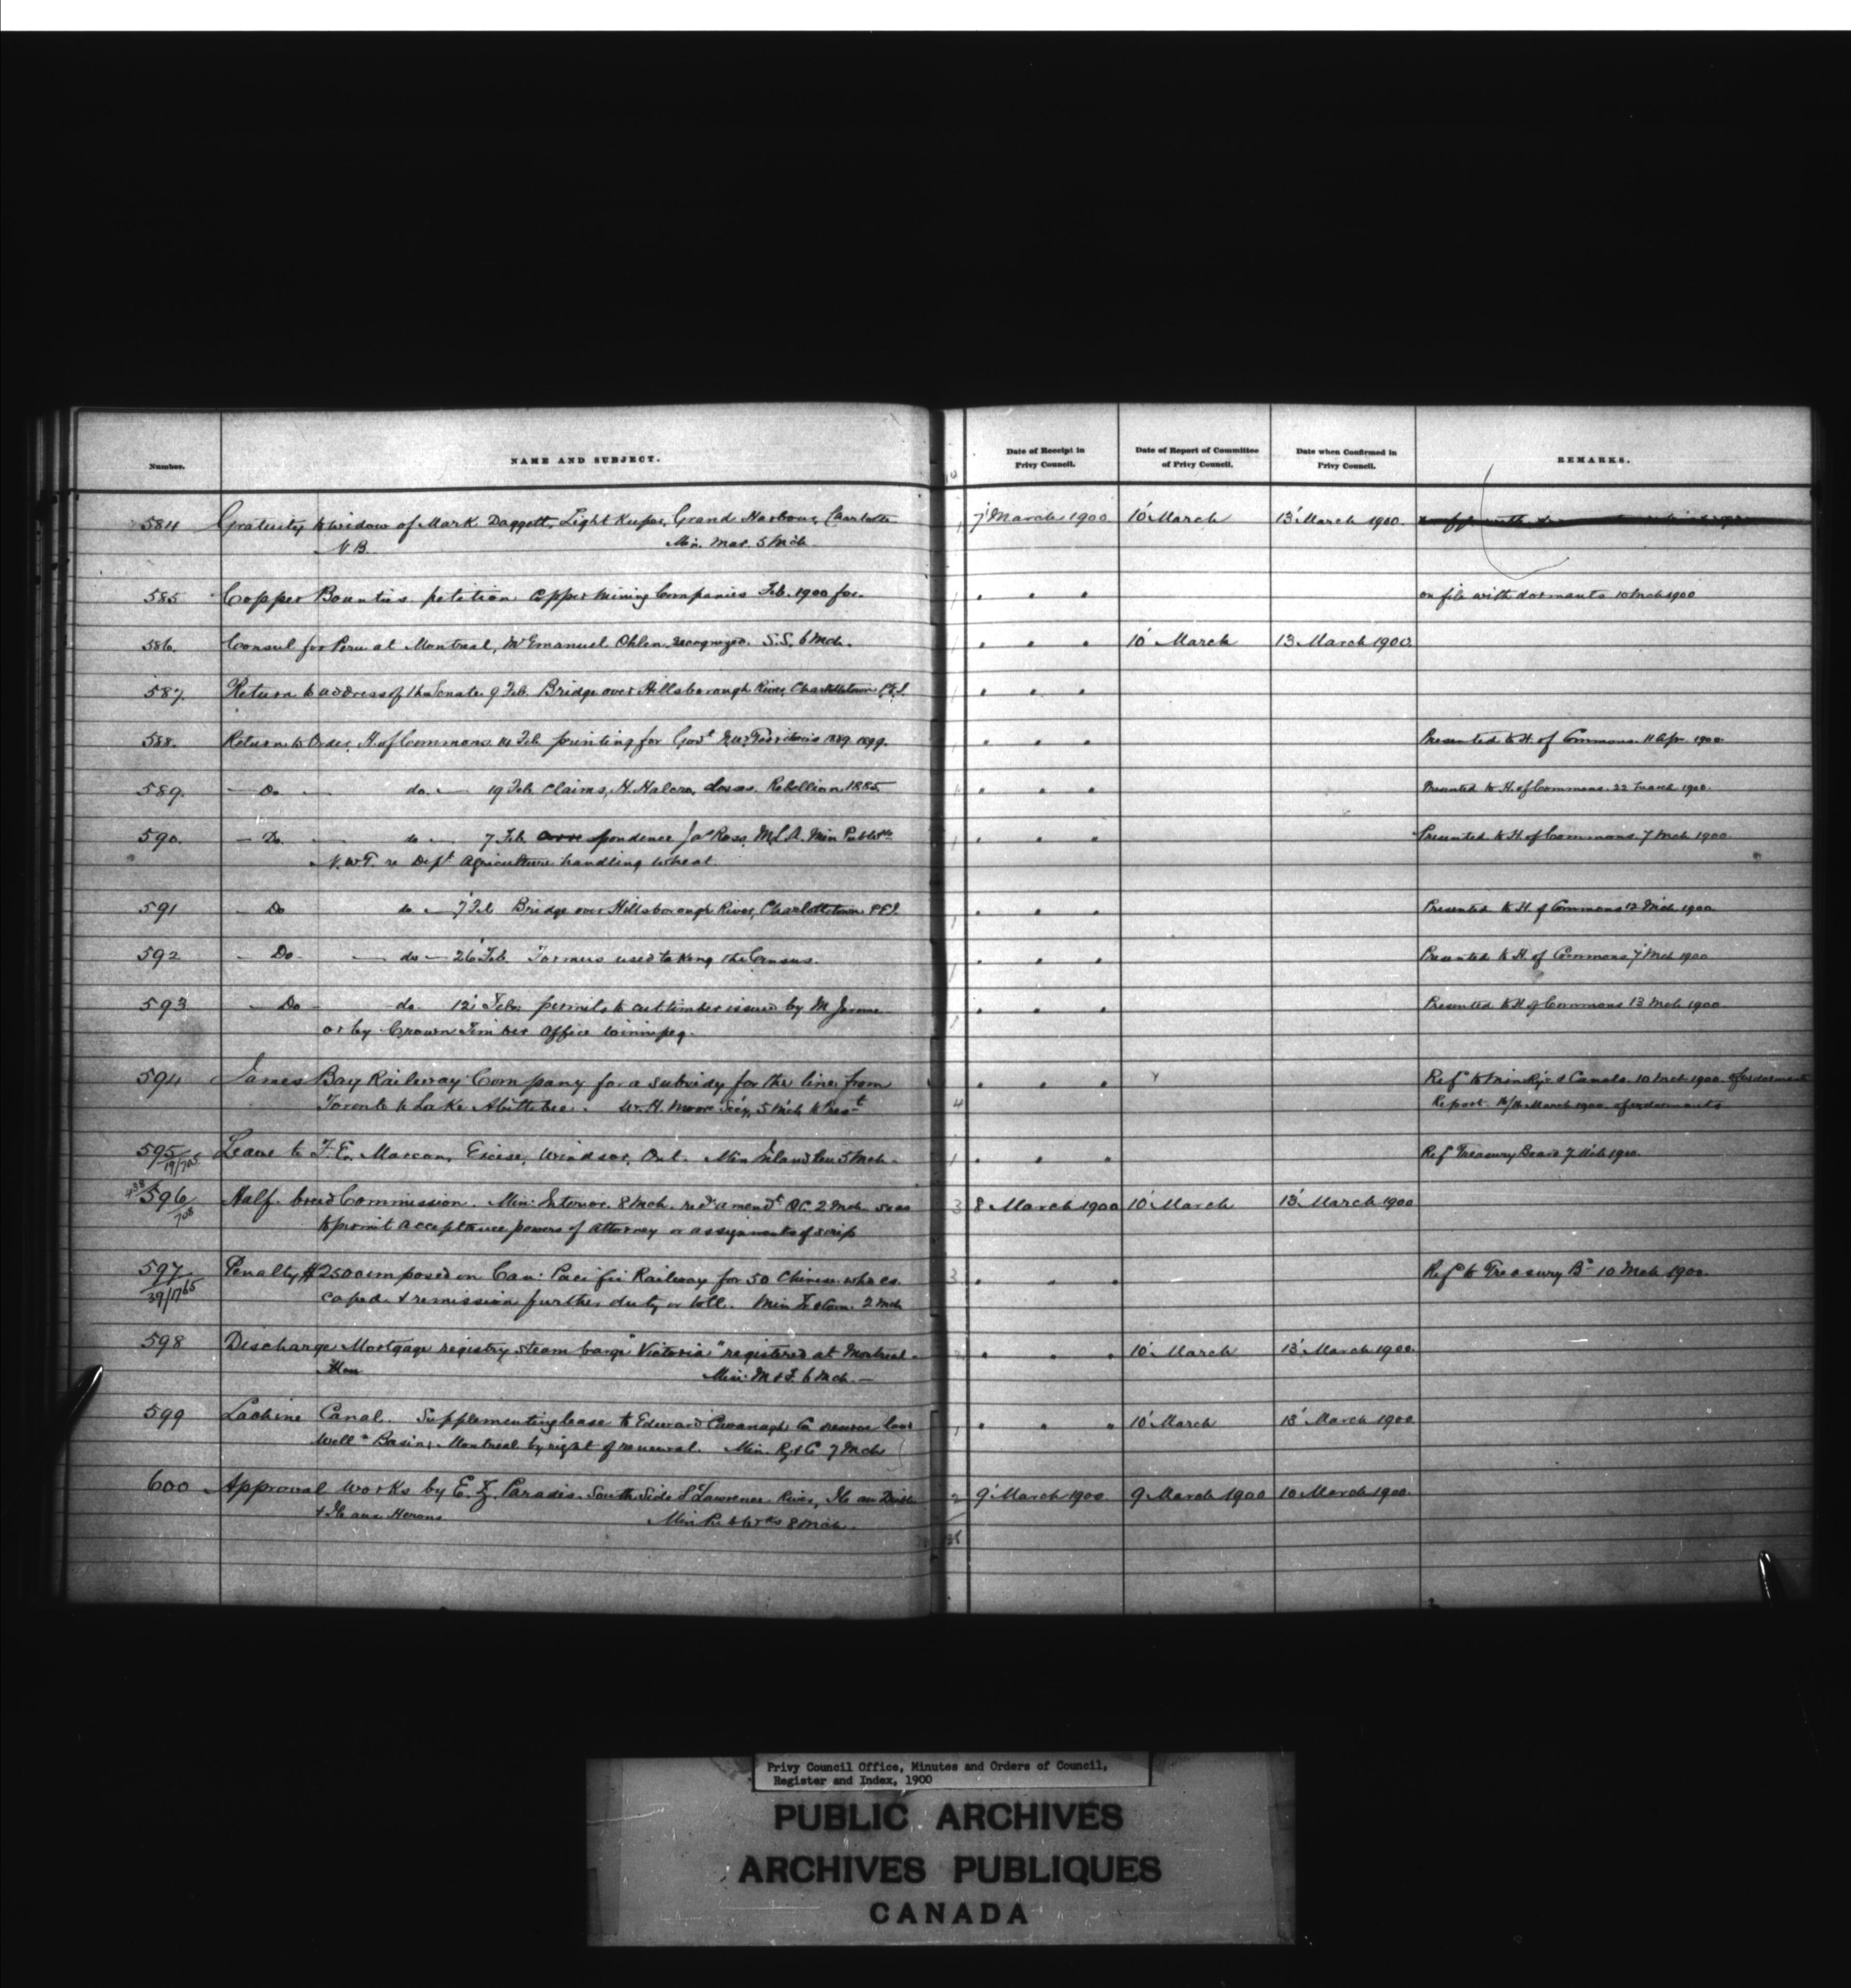 Number. NAME AND SUBJECT. Date of Receipt in Privy Council. Date of Report of Committee of Privy Council. Date when Confirmed in Privy Council. REMARKS.
584 Gratuity to widow of Mark Daggett, Light Keeper, Grand Harbour, Charlotte 1 7' March 1900 10' March 13' March 1900.
N B. Min. Mar. 5 Mch
585 Copper Bounties petition Copper Mining Companies Feb. 1900 for. 1 " " " on file with dormants 10 Mch 1900
586. Consul for Peru at Montreal, Mr Emanuel Ohlen recognized. S.S. 6 Mch. 1 " " " 10' March 13 March 1900.
587. Return to address of the Senate 9 Feb. Bridge over Hillsborough River, Charlottetown P.E.I. 1 " " "
588. Return to Order, H. of Commons 14 Feb printing for Govt N.W. Territories 1889 1899. 1 " " " Presented to H. of Commons 11 Apr. 1900
589. — Do — do. — 19 Feb. Claims, H. Halcro, losses. Rebellion 1885 1 " " " Presented to H. of Commons. 22 March 1900.
590. — Do. — do — 7 Feb. Correspondence Jas Ross, M.L.A. Min Public Wks 1 " " " Presented to H. of Commons. 7 Mch 1900
N.W.T. re Dept Agriculture handling wheat
591 — Do do — 7' Feb Bridge over Hillsborough River, Charlottetown P.E.I. 1 " " " Presented to H. of Commons 12 Mch 1900.
592 — Do — — do — 26' Feb. Formers used taking the Census. 1 " " " Presented to H. of Commons 7' Mch 1900
593 — Do — do 12' Feb. permits to cut timber issued by M 1 " " " Presented to H of Commons 13 Mch 1900
or by Crown Timber Office Winnipeg.
594 James Bay Railway Company for a subsidy for the line from " " " Refd to Min Rys & Canals. 10 Mch 1900
Toronto to Lake Abittibee. W. H. Moore Secy, 5 Mch to Prest 4 Report March 1900
595 Leave to F. E. Marcon, Excise, Windsor, Ont. Min Inland Rev 5 Mch. 1 " " " Ref Treasury Board 7 Mch 1900.
19/705
596 Half-breed Commission. Min: Interior. 8 Mch. amendt OC. 2 Mch 3 8 March 1900 10' March 13' March 1900
708 to permit acceptance powers of attorney or assignments of scrip
597 Penalty $2500 imposed on Can: Pacific Railway for 50 Chinese who es- 3 " " " Refd to Treasury Bd 10 Mch 1900.
39/1765 caped & remission further duty or toll. Min Tr & Com. 2 Mch
598 Discharge Mortgage registry steam barge "Victoria" registered at Montreal. 2 " " " 10' March 13' March 1900.
Min: M & F. 6 Mch. —
599 Lachine Canal. Supplementing lease to Edward Cavanagh Co reserve land 1 " " " 10' March 13' March 1900
Well n Basin, Montreal by right of renewal. Min. R & C 7 Mch
600 Approval works by E. Z. Paradis. South Side St Lawrence River, Ile au 2 9' March 1900 9 March 1900 10 March 1900.
& Ile aux Herons Min Pu. Wks 8 Mch.
Privy Council Office, Minutes and Orders of Council,
Register and Index, 1900
PUBLIC ARCHIVES
ARCHIVES PUBLIQUES
CANADA